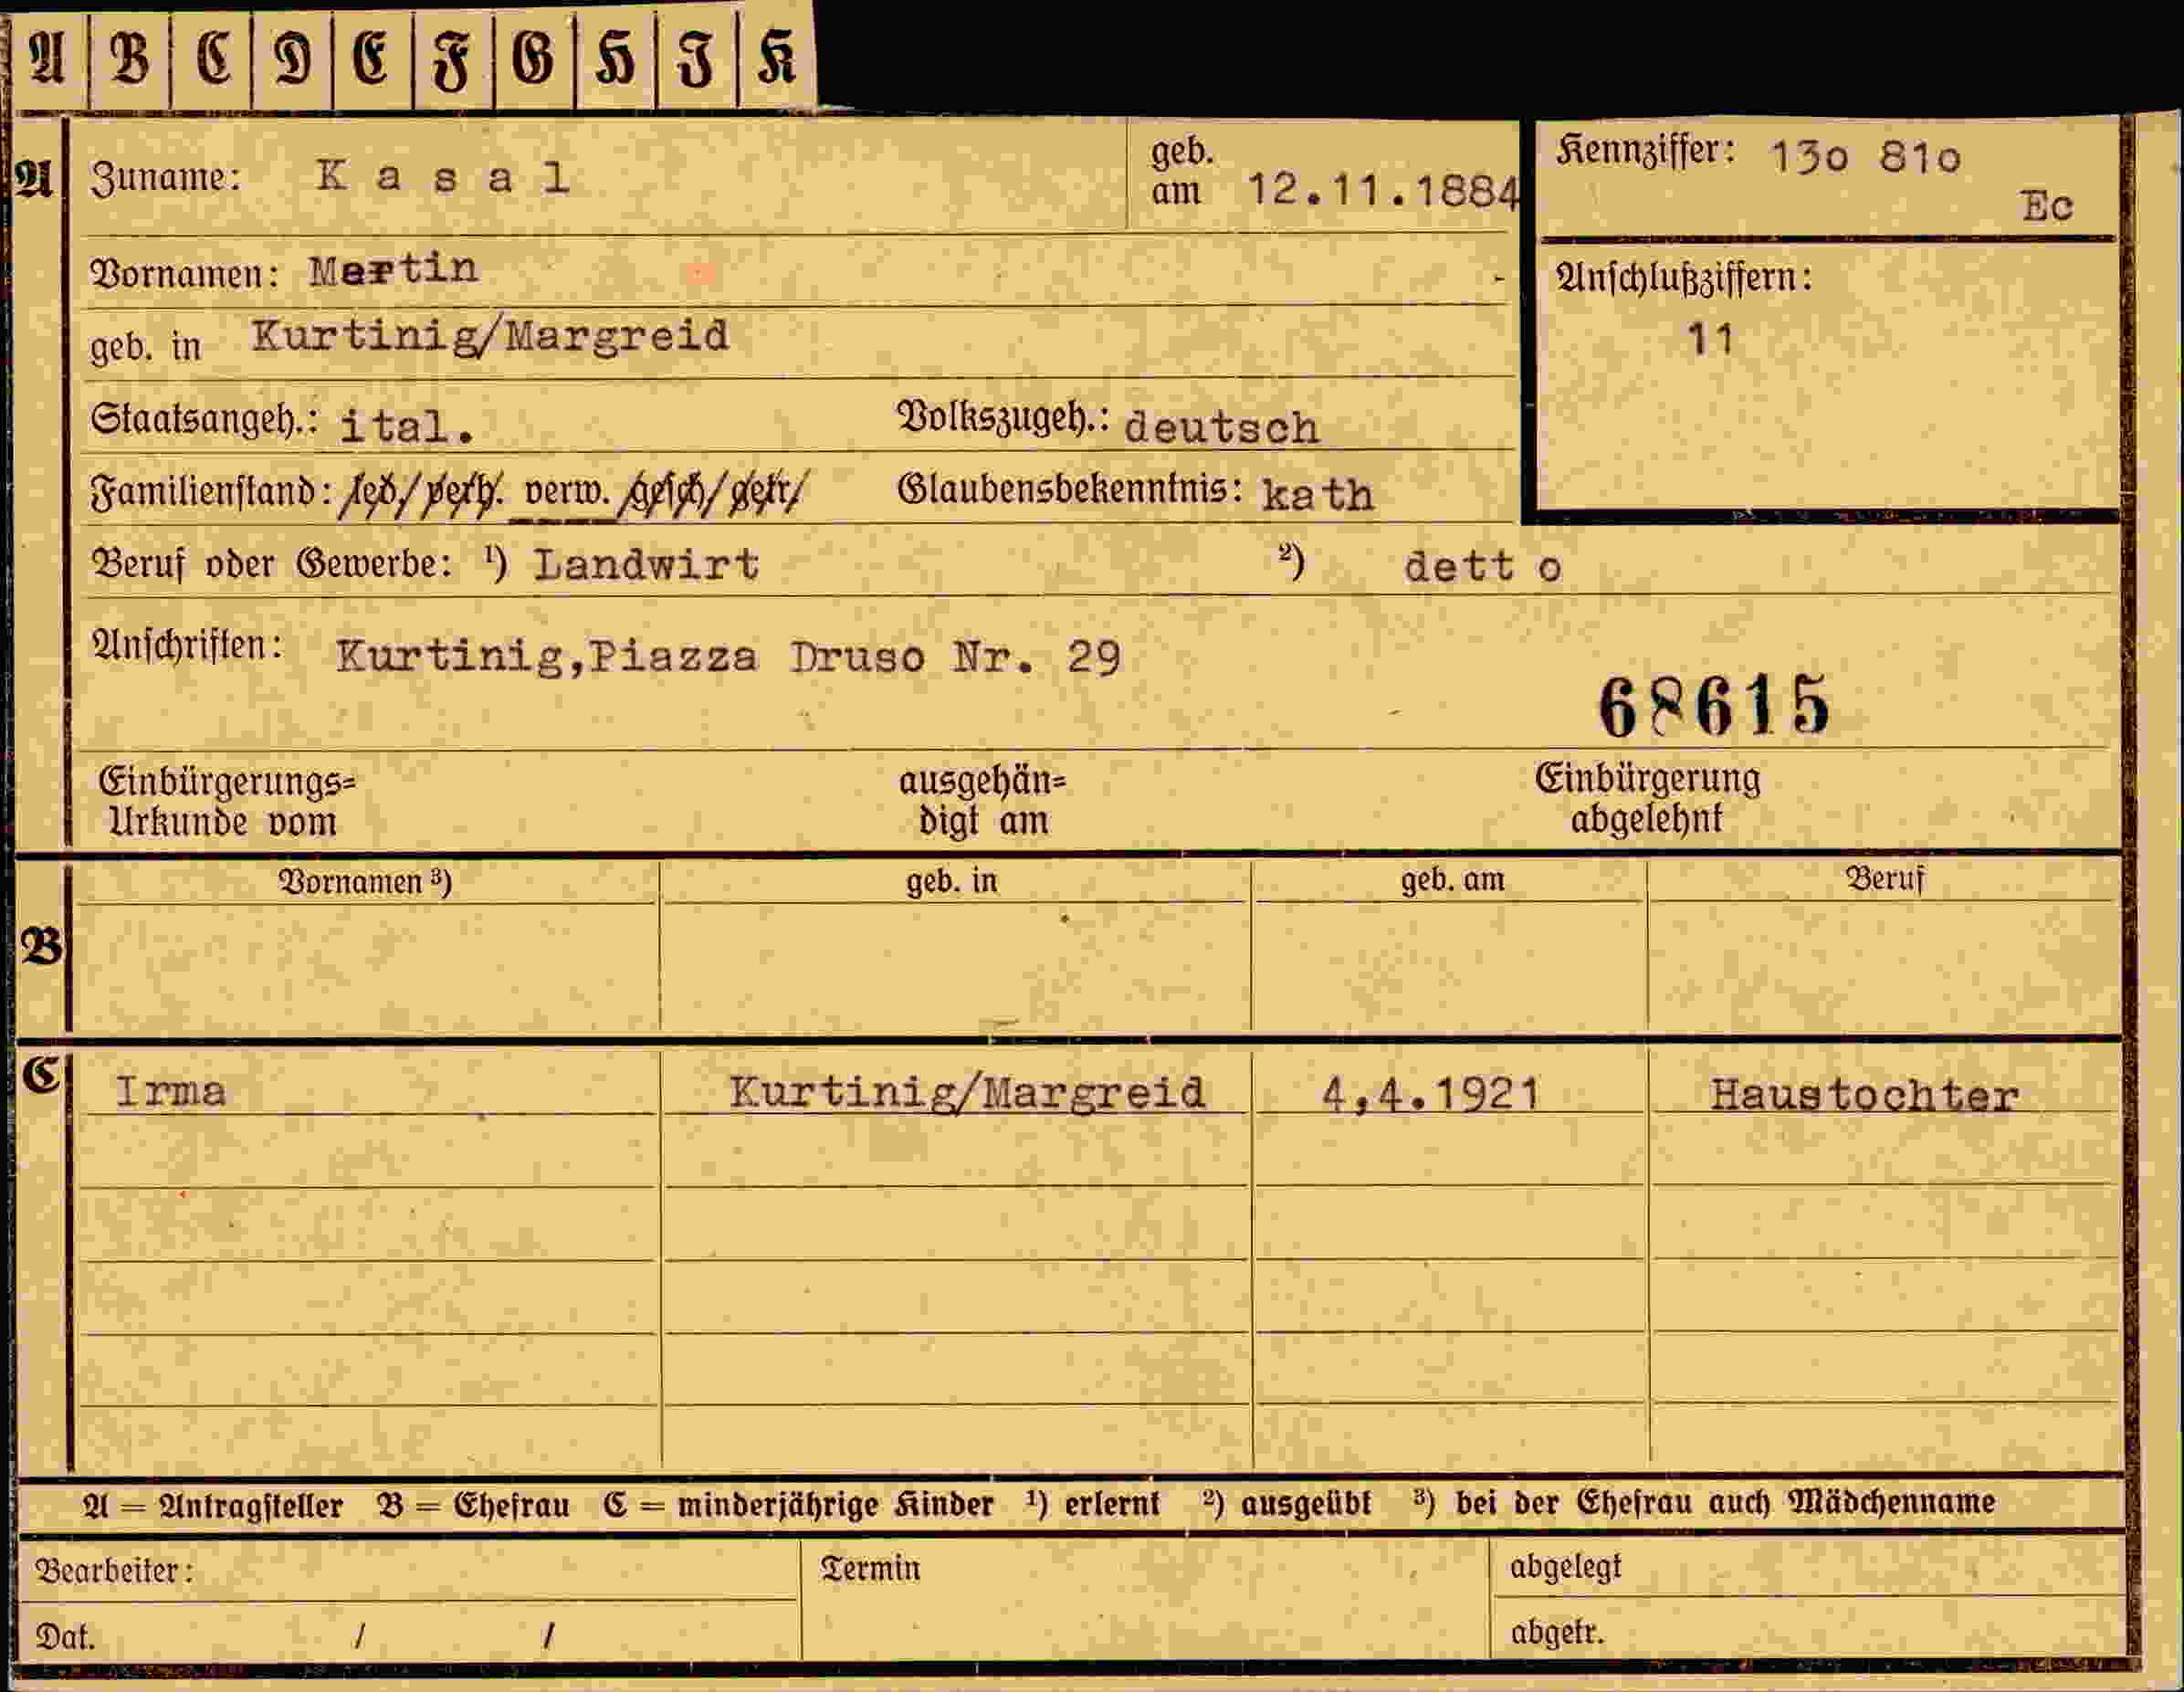 A B C D E F G H I K
A Zuname: Kasal geb. am 12.11.1884 Kennziffer: 130 810
Ec
Vornamen: Martin
Anschlußziffern:
geb. in Kurtinig/Margreid 11
Staatsangeh.: ital. Volkszugeh.: deutsch
Familienstand: led. verh. verw. gesch. getr. Glaubensbekenntnis: kath
Beruf oder Gewerbe: ¹) Landwirt ²) dett o
Anschriften: Kurtinig,Piazza Druso Nr. 29
68615
Einbürgerungs= ausgehän= Einbürgerung
Urkunde vom digt am abgelehnt
Vornamen ³) geb. in geb. am Beruf
B
C Irma Kurtinig/Margreid 4,4.1921 Haustochter
A = Antragsteller B = Ehefrau C = minderjährige Kinder ¹) erlernt ²) ausgeübt ³) bei der Ehefrau auch Mädchenname
Bearbeiter: Termin abgelegt
Dat. / / abgetr.